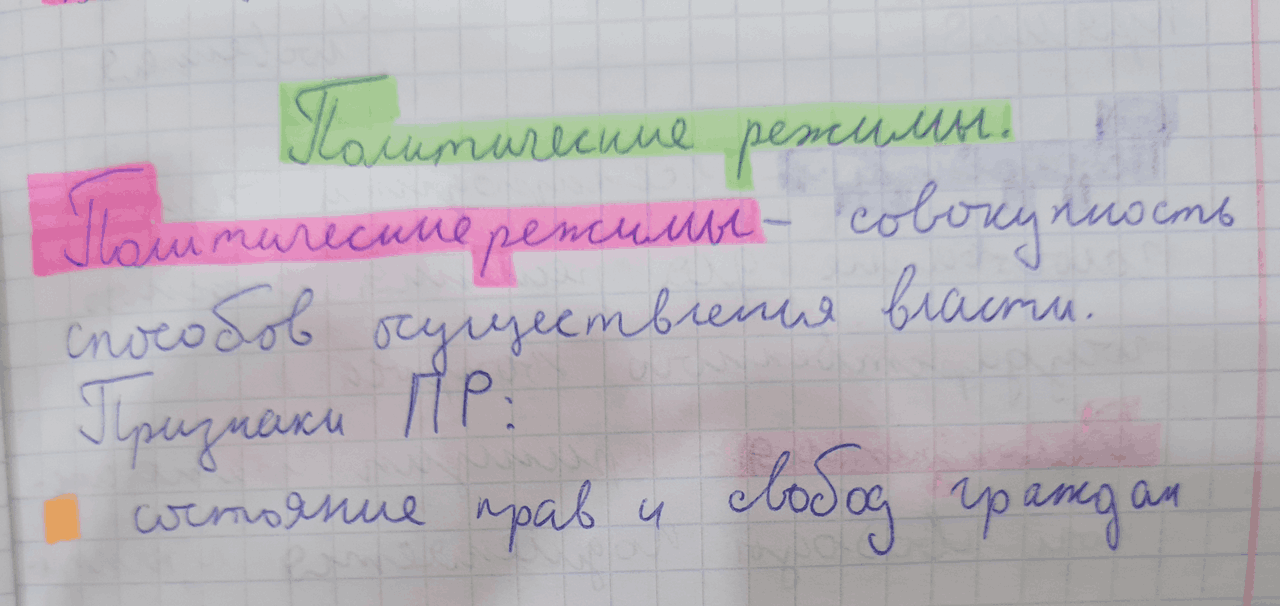 Политические режимы.
Политические режимы – совокупность
способов осуществления власти.
Признаки ПР:
состояние прав и свобод граждан